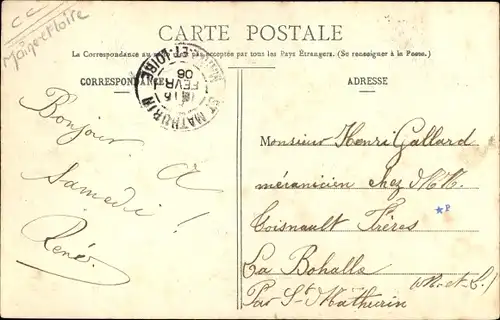 CC
Maine et Loire
CARTE POSTALE
La Correspondance au acceptée par tous les Pays Étrangers. (Se renseigner à la Poste.)
CORRESPONDANCE
ADRESSE
ST MATHURIN
ET-LOIRE
16
FEVR
06
Bonjour. A
Samedi !
René.
Monsieur Henri Gallard
mécanicien chez M.M.
Coisnault Frères
La Bohalle
(M.-et-L.)
Par St Mathurin
*P